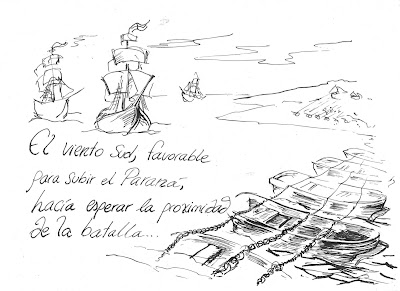 El viento Sud, favorable
para subir el Paraná,
hacía esperar la proximidad
de la batalla...